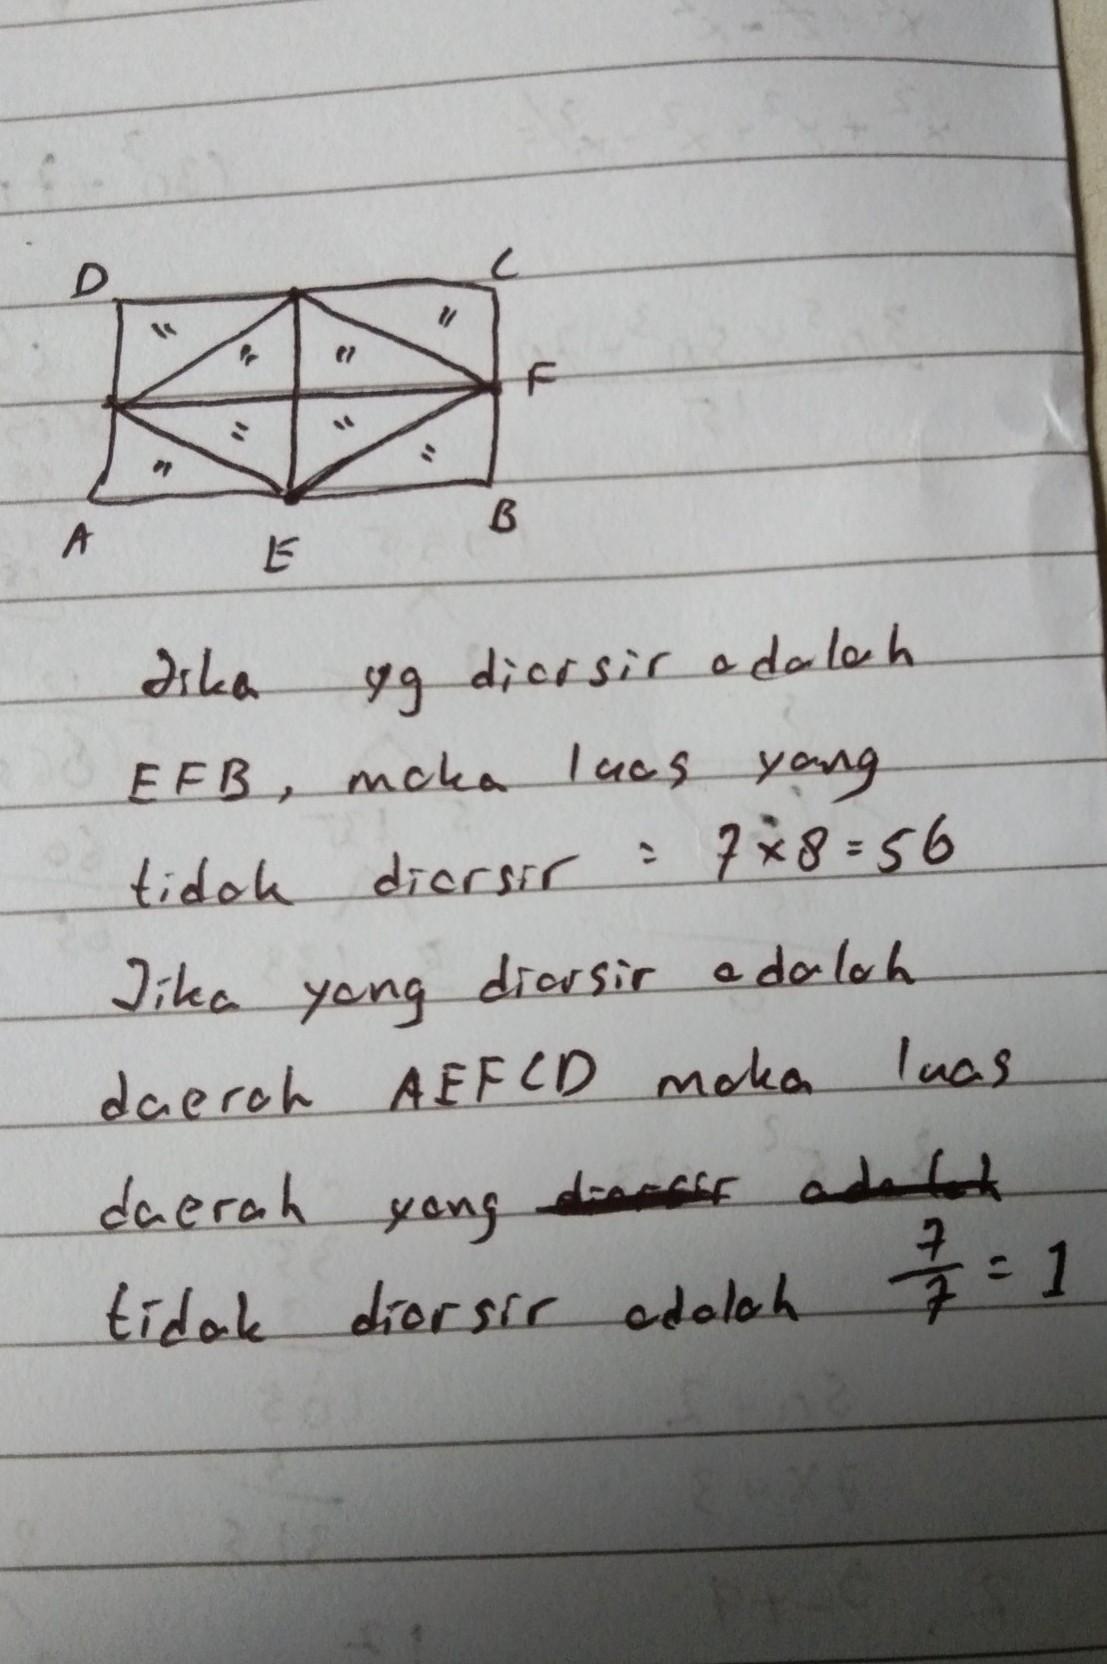 D C
F
A E B
Jika yg diarsir adalah
EFB, maka luas yang
tidak diarsir = 7 x 8 = 56
Jika yang diarsir adalah
daerah AEFCD maka luas
daerah yang diarsir adalah
tidak diarsir adalah 7/7 = 1